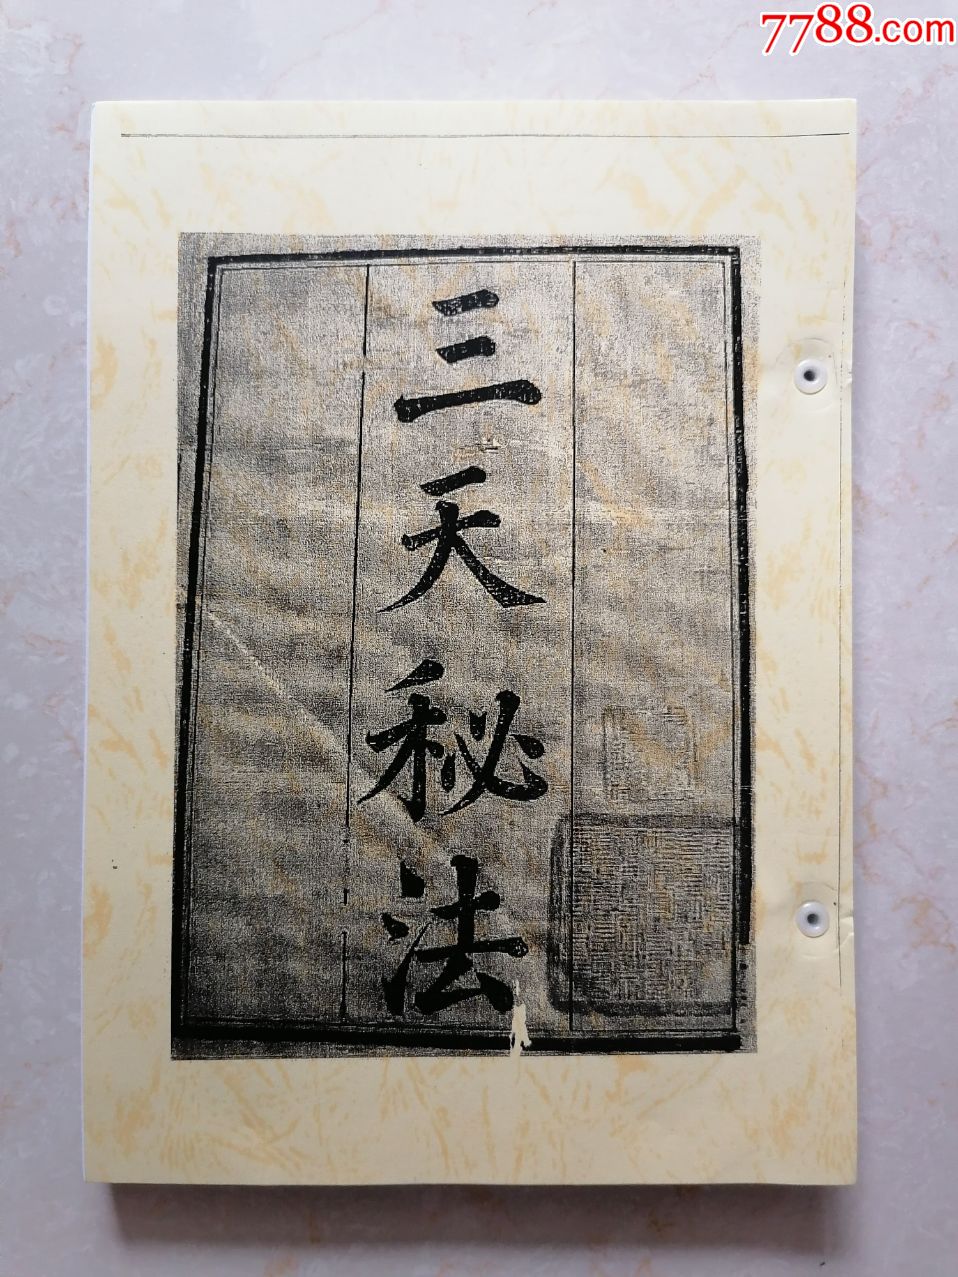 7788.com
三天秘法